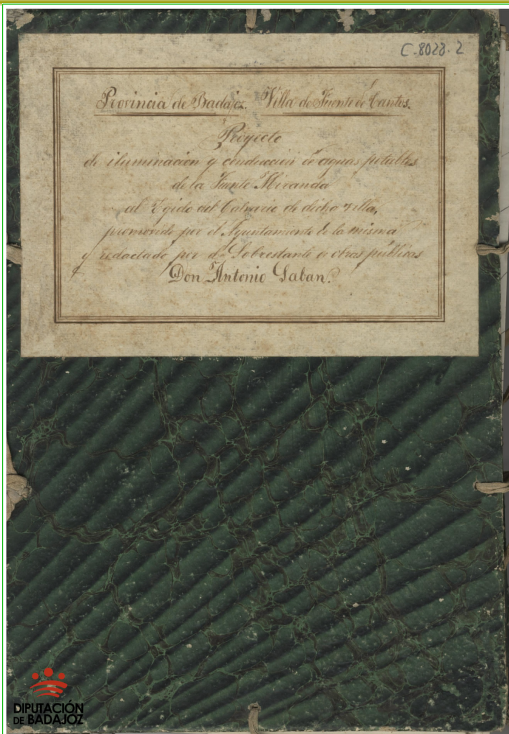 C-8028.2
Provincia de Badajoz. Villa de Fuente de Cantos.
Proyecto
de iluminación y conducción de aguas potables
de la Fuente Miranda
al Egido del Calvario de dicha villa,
promovido por el Ayuntamiento de la misma
y redactado por el Sobrestante de obras públicas
Don Antonio Gaban.
DIPUTACIÓN
DE BADAJOZ